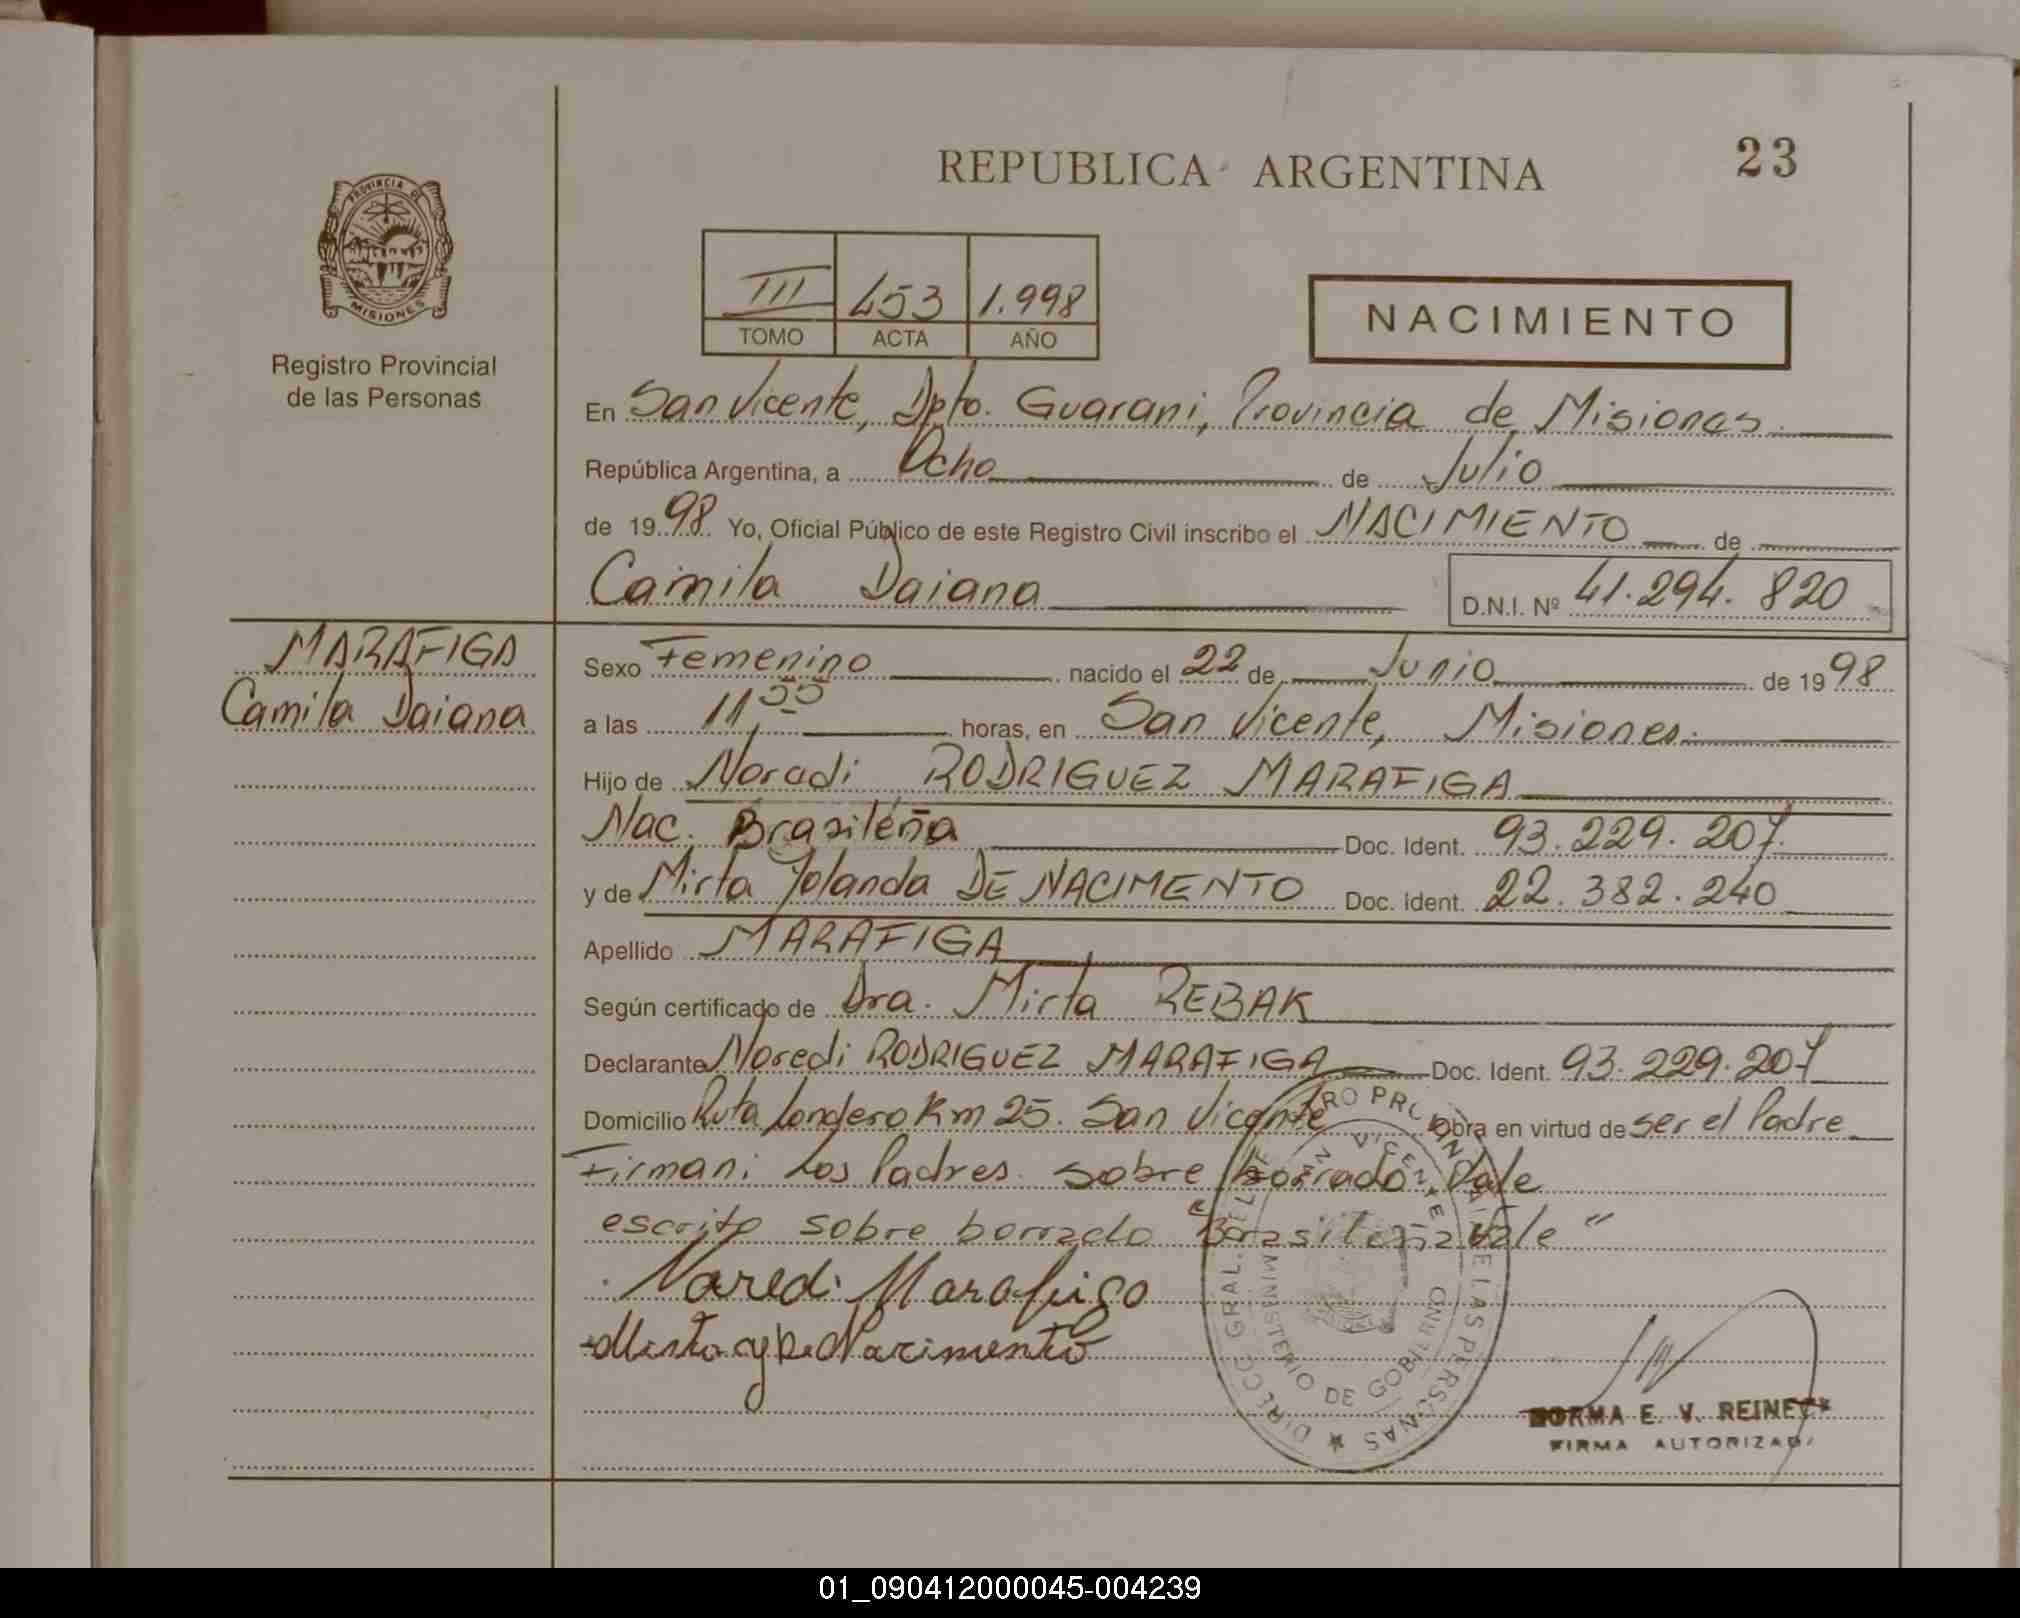 REPUBLICA ARGENTINA
23
PROVINCIA DE
MISIONES
Registro Provincial
de las Personas
III 453 1.998
TOMO ACTA AÑO
NACIMIENTO
En San Vicente, Dpto. Guarani, Provincia de Misiones
República Argentina, a Ocho de Julio
de 1998 Yo, Oficial Público de este Registro Civil inscribo el NACIMIENTO de
Camila Daiana
D.N.I. Nº 41.294.820
MARAFIGA
Camila Daiana
Sexo Femenino nacido el 22 de Junio de 1998
a las 11,55 horas, en San Vicente, Misiones.
Hijo de Noradi RODRIGUEZ MARAFIGA
Nac. Brasileña Doc. Ident. 93.229.207.
y de Mirta Yolanda DE NACIMENTO Doc. Ident. 22.382.240
Apellido MARAFIGA
Según certificado de Dra. Mirta REBAK
Declarante Noredi RODRIGUEZ MARAFIGA Doc. Ident. 93.229.207
Domicilio Ruta Londero Km 25. San Vicente Obra en virtud de ser el Padre
Firman: Los Padres. sobre borrado Vale
escrito sobre borrado "Brasileña Vale"
Naredi Marafigo
Mirta y De Nacimento
SAN VICENTE
MINISTERIO DE GOBIERNO
DE LAS PERSONAS ★ DIRECC GRAL. DEL
NORMA E. V. REINECK
FIRMA AUTORIZADA
01_090412000045-004239